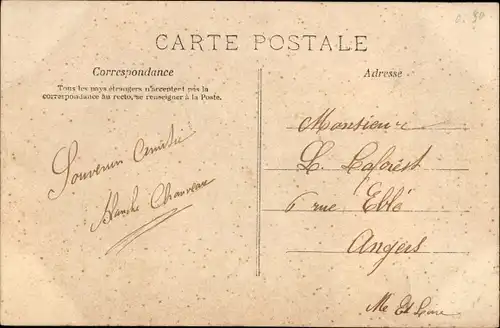 CARTE POSTALE
Correspondance
Tous les pays étrangers n'acceptent pas la
correspondance au recto, se renseigner à la Poste.
Adresse
Souvenir Amitié
Blanche
Monsieur
L. Laforest
6 rue Eblé
Angers
Me Et Loire